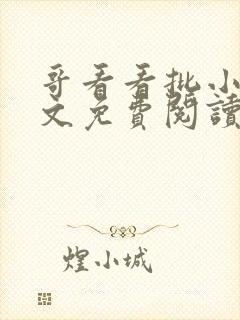 哥看看批小
文免費閱讀
煌小城